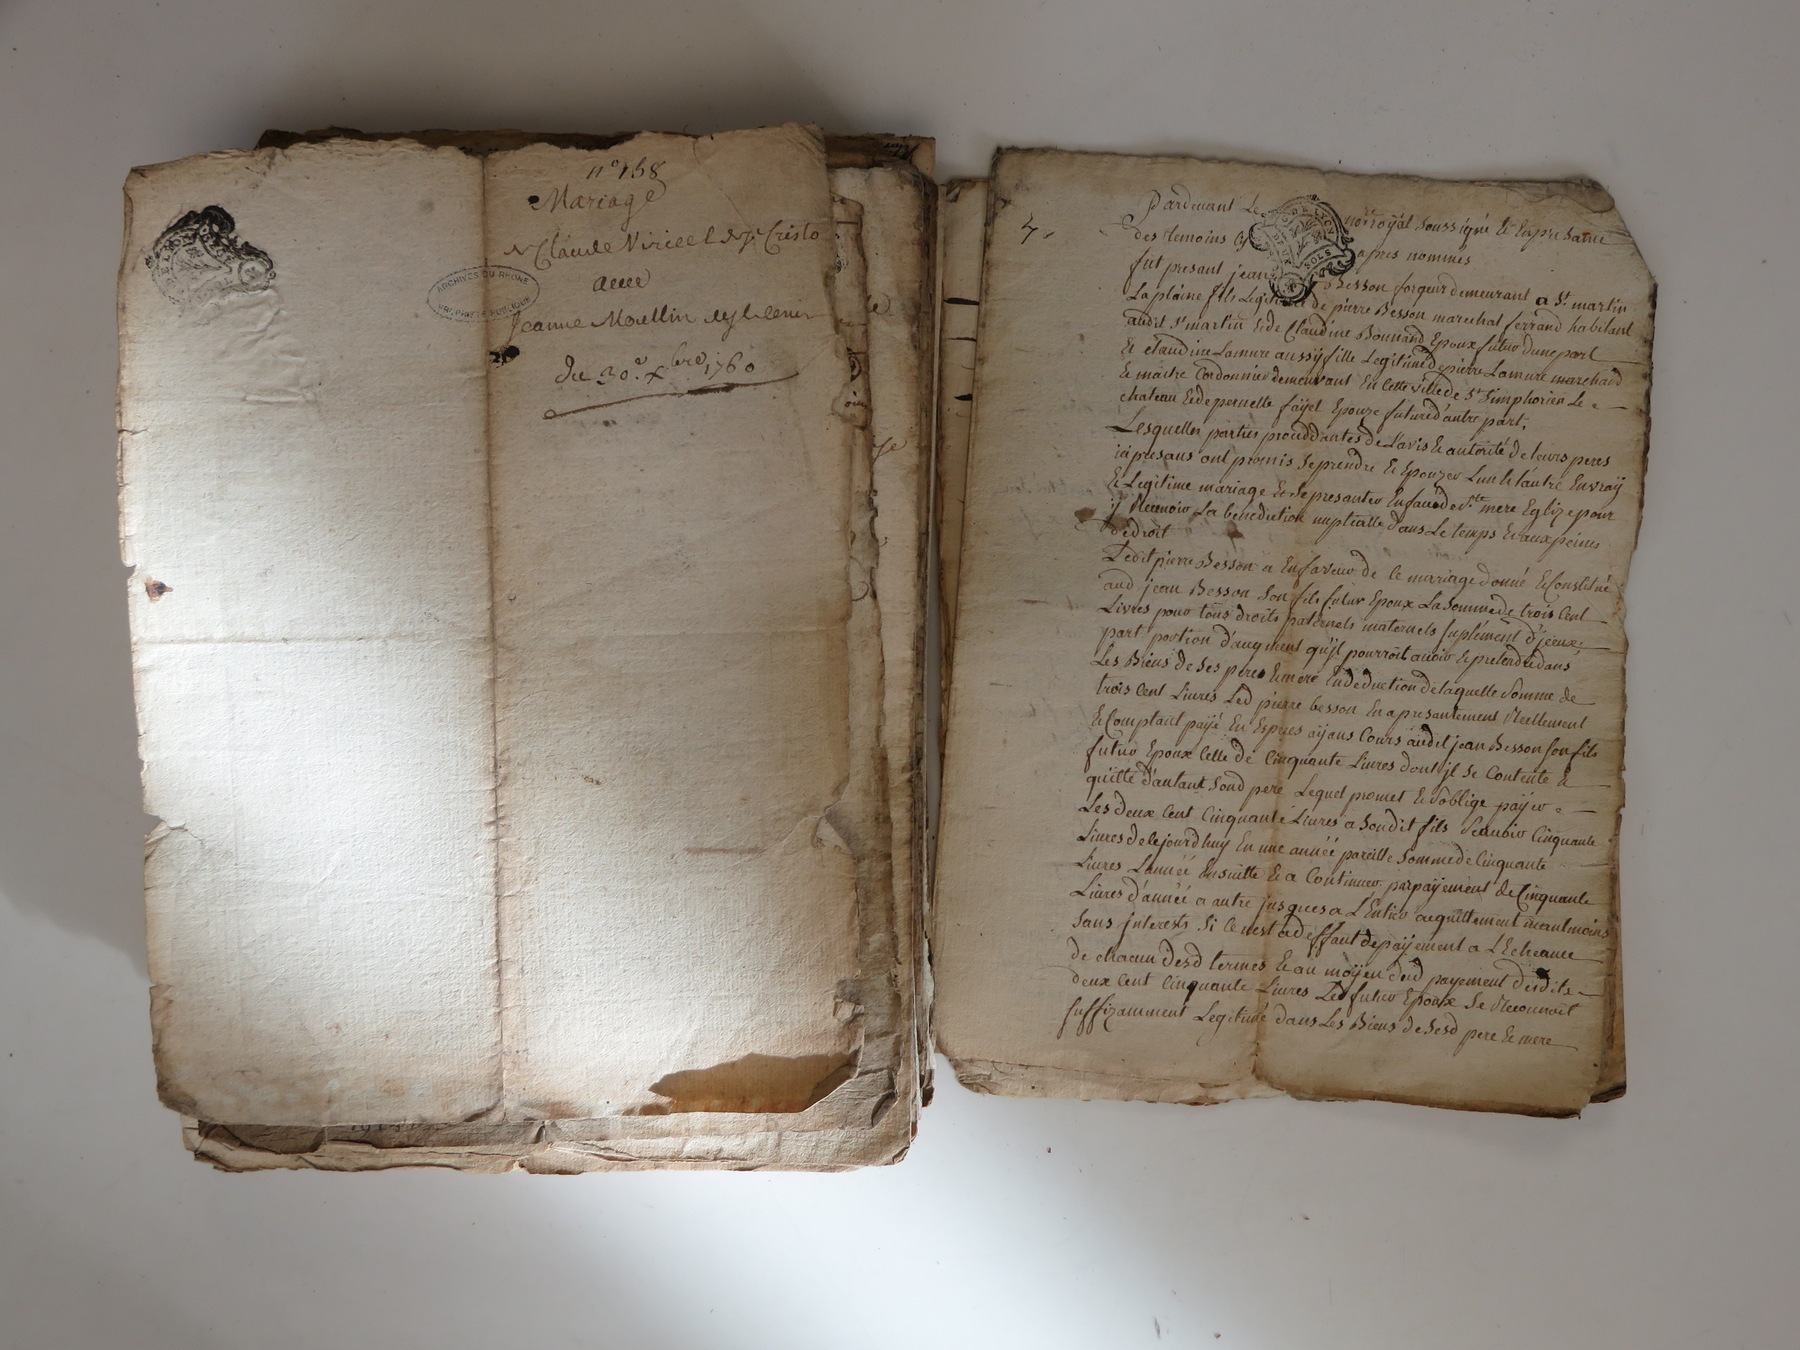 n° 158
Mariage
Claude Viricel
avec
Jeanne Moullin
du 30e xbre 1760
ARCHIVES DU RHONE
PROPRIETE PUBLIQUE
Pardevant Le noire royal soussigné et En presance
des temoins cy apres nommés
fut presant jean Besson forgeur demeurant a St. martin
La plaine fils Legitime de pierre Besson marechal ferrand habitant
audit St martin & de Claudine Bonnand Epoux futur dune part
Et claudine Lamure aussy fille Legitime de pierre Lamure marchand
Et maitre Cordonnier demeurant En cette ville de St Simphorien Le
chateau Et de pernette fayet Epouze future d'autre part,
Lesquelles parties proceddantes de L'avis Et autorité de leurs peres
ici presans ont promis se prendre Et Epouzer Lun Et L'autre En vray
Et Legitime mariage Et se presanter En face de Ste mere Eglize pour
y Recevoir La benediction nuptialle dans Le temps Et aux peines
de droit
Ledit pierre Besson a En faveur de Ce mariage donné Et Constitué
aud jean Besson Son fils futur Epoux La somme de trois Cent
Livres pour tous droits paternels maternels suplément d'jceux,
part portion d'augment qu'jl pourroit avoir Et pretendre dans
Les Biens de Ses pere Et mere En deduction de laquelle Somme de
trois Cent Livres Led pierre besson En a presantement Réellement
Et Comptant payé En Especes ayans Cours audit jean Besson son fils
futur Epoux Celle de Cinquante Livres dont jl Se Contente Et
quitte d'autant Sond pere Lequel promet Et S'oblige payer
Les deux Cent Cinquante Livres a Sondit fils Scavoir Cinquante
Livres de Cejourdhuy En une année pareille Somme de Cinquante
Livres L'année Ensuitte Et a Continuer par payement de Cinquante
Livres d'année a autre jusques a L'Entier acquittement neantmoins
Sans jnterests Si Ce nest a deffaut de payement a L'Echeance
de chacun desd termes Et au moyen dud payement desdits
deux Cent Cinquante Livres Led futur Epoux Se Reconnoit
suffizamment Legitimé dans Les Biens de Sesd pere Et mere